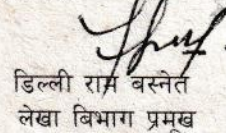 डिल्ली राम बस्नेत
लेखा बिभाग प्रमुख